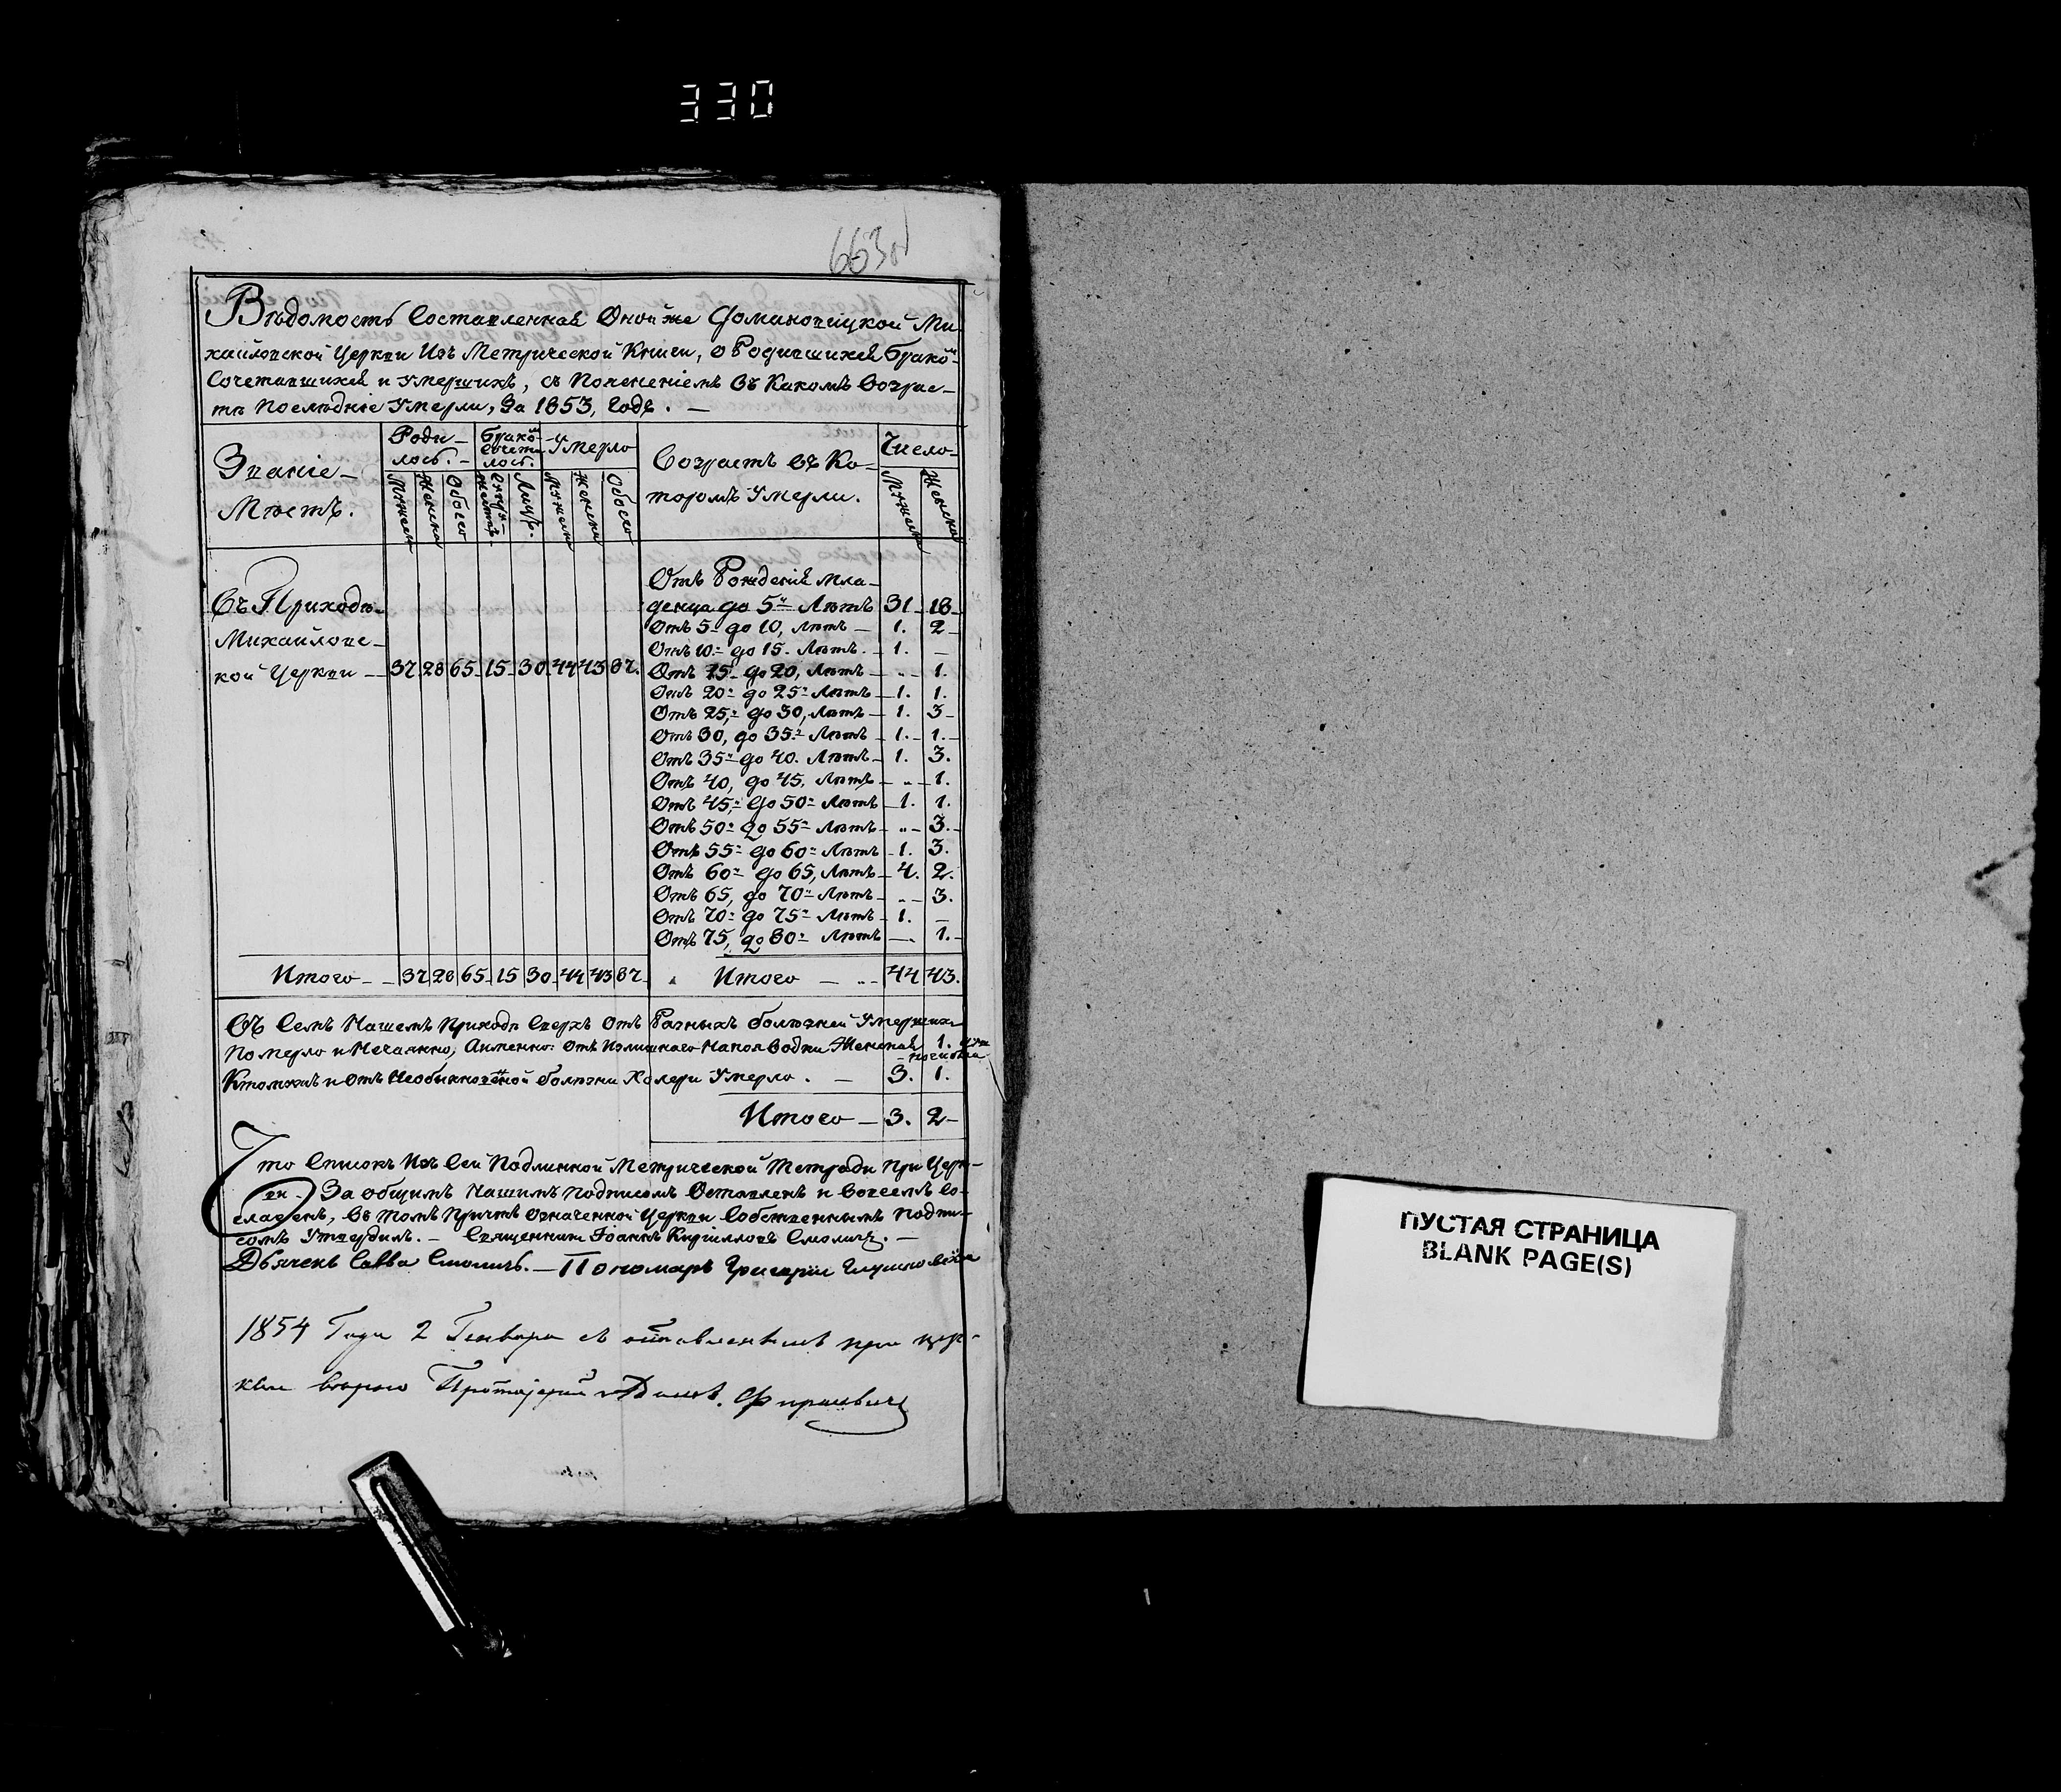 330
663 об
Вѣдомость Составленная Оной же Домановицкой Ми
хайловской Церкви Изъ Метрической Книги, о Родившихся Брако͞м
Сочетавшихся и умершихъ, съ Поясненіемъ Въ Какомъ Возрас–
тѣ Послѣдніе Умерли, За 1853, Годъ. –
Званіе –
Мѣстъ.
Роди –
лось. –
Брако͞м
Сочета
лось.
Умерло
Возрастъ въ Ко–
торомъ Умерли.
Число
Мужеска Женска Обоего Лицъ. Мужеска Женска Обоего Мужеска Женска
Отъ Рожденія мла–
Въ Приходѣ денца до 5ᵘ Лѣтъ 31 18
Михайловс– Отъ 5 до 10, лѣтъ – 1. 2
Отъ 10 до 15. Лѣтъ. – 1. –
кой Церкви – 37 28 65 15 30 44 43 87. Отъ 15 до 20, лѣтъ – „ 1.
Отъ 20 до 25 Лѣтъ – 1. 1.
Отъ 25, до 30, Лѣтъ – 1. 3
Отъ 30, до 35 Лѣтъ – 1. 1.
Отъ 35 до 40. Лѣтъ – 1. 3.
Отъ 40, до 45, Лѣтъ – „ 1.
Отъ 45, до 50 Лѣтъ – 1. 1.
Отъ 50 до 55 Лѣтъ – „ 3.
Отъ 55 до 60 Лѣтъ – 1. 3.
Отъ 60 до 65, Лѣтъ – 4. 2.
Отъ 65, до 70 Лѣтъ – „ 3.
Отъ 70 до 75 Лѣтъ – 1. –
Отъ 75, до 80 Лѣтъ – 1.
Итого – 37 28 65 15 30 44 43 87 Итого – 44 43.
Въ Семъ Нашемъ Приходѣ Сверхъ Отъ Разныхъ болѣзней Умершихъ
Померло и Нечаянно, Аименно: Отъ Излишняго Напоя Водки Женская 1.
Ктомужъ и отъ Необыкновенной болѣзни Холеры Умерло. – 3. 1.
Итого – 3. 2 –
Что Списокъ Изъ Сей Подлинной Метрической Тетради при Церк–
ви – За общимъ Нашимъ Подписомъ Оставленъ и вовсемъ Со–
гласенъ, Въ томъ Причтъ Означенной Церкви Собственнымъ Подпи–
сомъ Утвердилъ. – Священникъ Іоаннъ Кирилловъ Смоличъ. –
Дьячекъ Савва Смоличъ. – Пономарь Григорій
1854 Года 2 Генваря съ оставленнымъ при цер–
кви вѣрно Протоіерей
ПУСТАЯ СТРАНИЦА
BLANK PAGE(S)